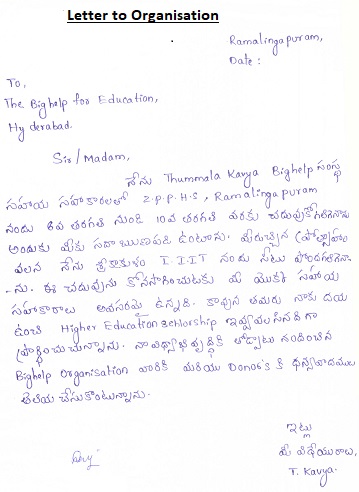 Letter to Organisation
Ramalingapuram,
Date :
To,
The Bighelp for Education,
Hyderabad.
Sir/Madam,
నేను Thummala Kavya Bighelp సంస్థ
సహాయ సహకారాలతో Z.P.P.H.S, Ramalingapuram
నందు 6వ తరగతి నుండి 10వ తరగతి వరకు చదువుకోగలిగినాను
అందుకు మీకు సదా ఋణపడి ఉంటాను. మీరుచ్చిన ప్రోత్సాహం
వలన నేను శ్రీకాకుళం I.I.I.T నందు సీటు పొందగలిగినా
-ను. ఈ చదువును కొనసాగించుటకు మీ యొక్క సహాయ
సహకారాలు అవసరమై ఉన్నది. కావున తమరు నాకు దయ
ఉంచి Higher Education Scholorship ఇవ్వవలసినదిగా
ప్రార్థించుచున్నాను. నా విద్యాభివృద్ధికి తోడ్పాటు నందించిన
Bighelp Organisation వారికి మరియు Donor's కి ధన్యవాదములు
తెలియచేసుకొంటున్నాను.
ఇట్లు
మీ విధేయురాలు,
T. Kavya.